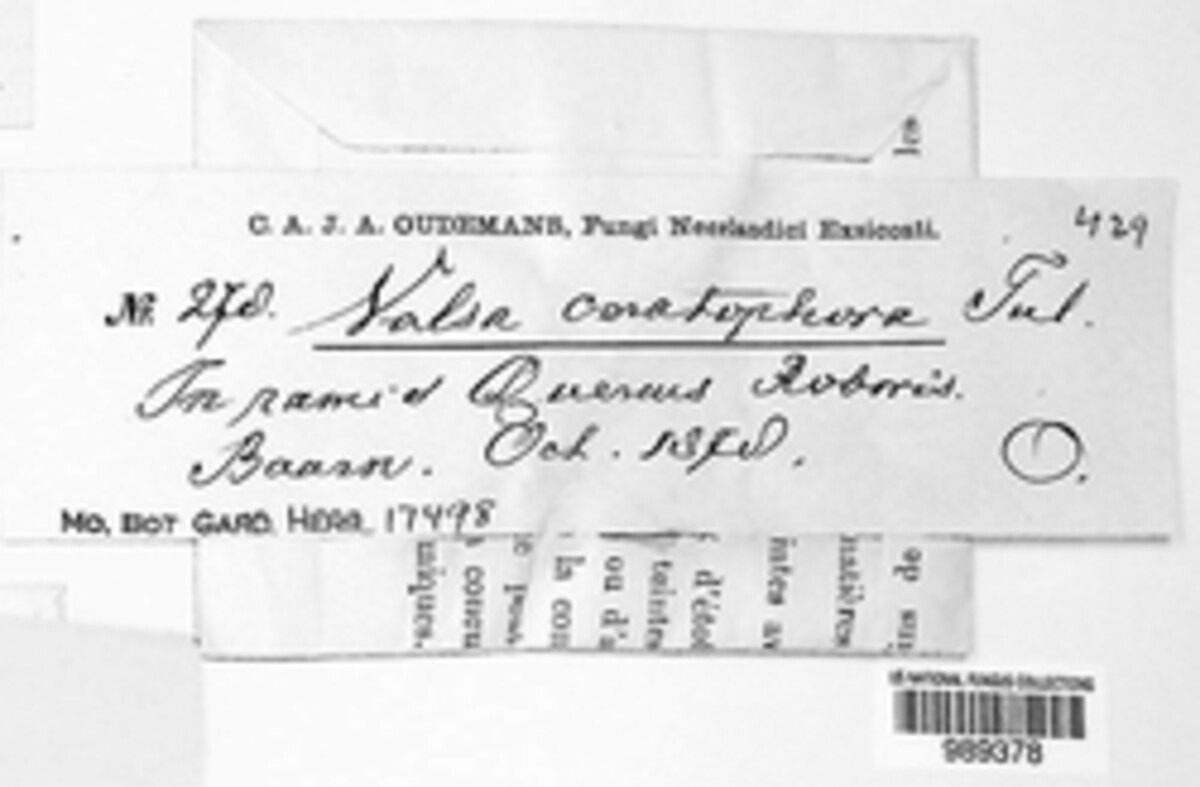 C. A. J. A. OUDEMANS, Fungi Neerlandici Exsiccati.
429
Nr. 278. Valsa ceratophora Tul.
In ramis Quercus Roboris.
Baarn. Oct. 1878.
O.
MO. BOT GARD. HERB. 17498
les
uniques.
conçu
pour
la con
ou d'a
teintes
d'écol
intes av
matières
ins de
US NATIONAL FUNGUS COLLECTIONS
989378